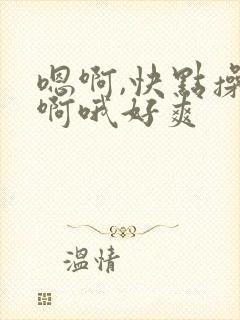 嗯啊,快點操
啊哦好爽
溫情